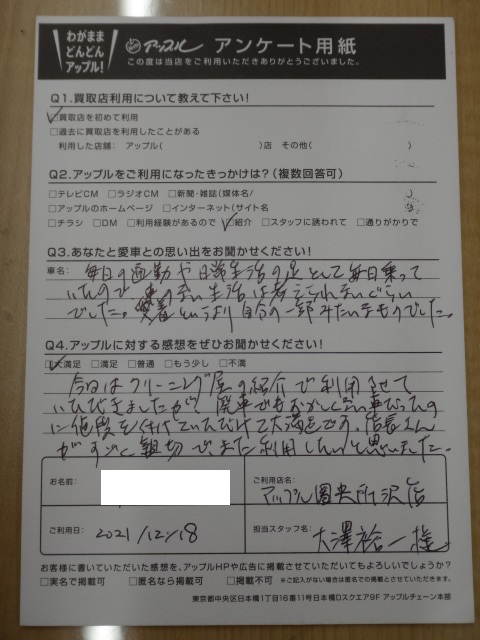 わがまま
どんどん
アップル!
アップル アンケート用紙
この度は当店をご利用いただきありがとうございました。
Q1.買取店利用について教えて下さい!
□買取店を初めて利用
□過去に買取店を利用したことがある
利用した店舗: アップル( )店 その他( )
Q2.アップルをご利用になったきっかけは?(複数回答可)
□テレビCM □ラジオCM □新聞・雑誌(媒体名/ )
□アップルのホームページ □インターネット(サイト名 )
□チラシ □DM □利用経験があるので □紹介 □スタッフに誘われて □通りがかりで
Q3.あなたと愛車との思い出をお聞かせください!
車名: 毎日の通勤や日常生活の足として毎日乗って
いたので 車のない生活は考えられないぐらい
でした。愛着というより自分の一部みたいなものでした。
Q4.アップルに対する感想をぜひお聞かせください!
□大満足 □満足 □普通 □もう少し □不満
今回はクリーニング屋の紹介で利用させて
いただきましたが、廃車でもおかしくない車だったの
に値段を付けていただけて大満足です。店長さん
がすごく親切でまた利用したいと思いました。
お名前:
ご利用店名:
アップル圏央所沢店
ご利用日: 2021/12/18
担当スタッフ名: 大澤裕一様
お客様に書いていただいた感想を、アップルHPや広告に掲載させていただいてもよろしいでしょうか?
□実名で掲載可 □匿名なら掲載可 □掲載不可 ※ご記入がない場合は匿名での掲載とさせていただきます。
東京都中央区日本橋1丁目16番11号日本橋Dスクエア9F アップルチェーン本部